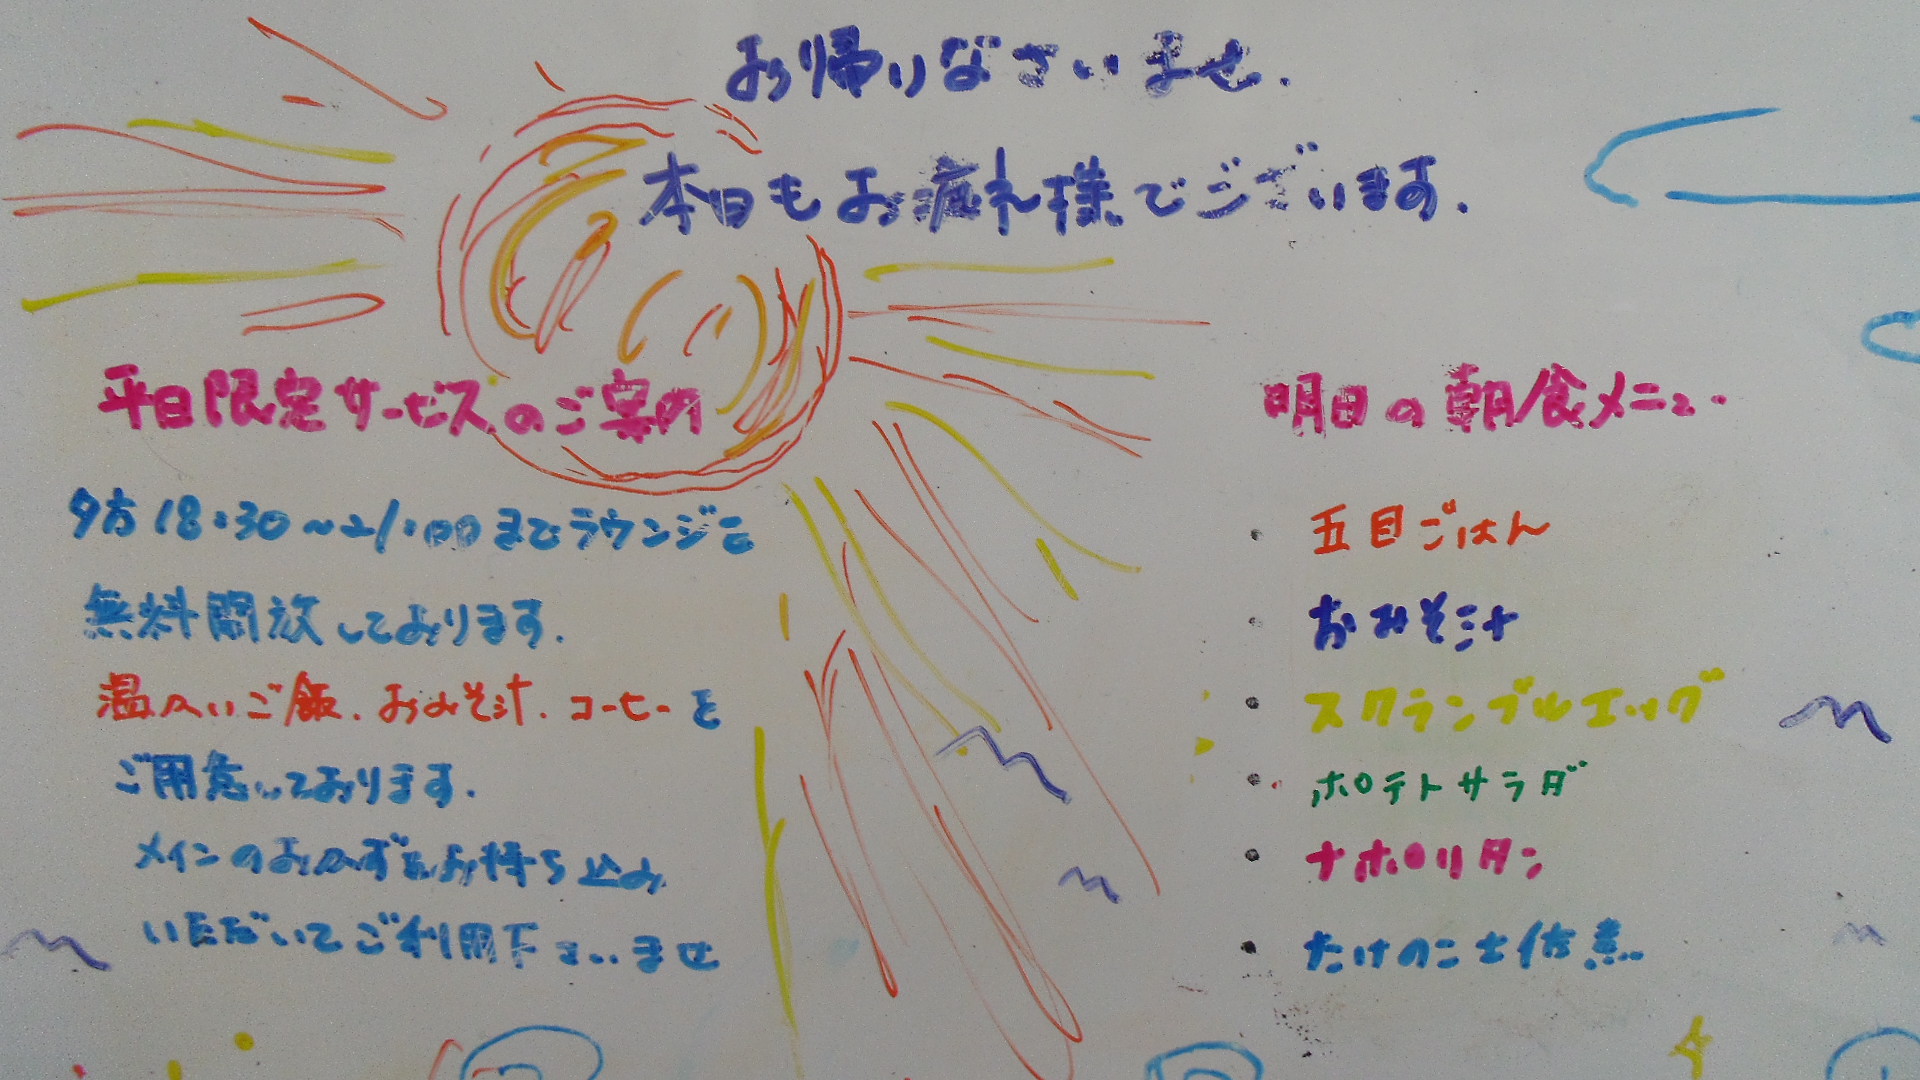 お帰りなさいませ.
本日もお疲れ様でございます.
平日限定サービスのご案内
夕方18:30～21:00までラウンジを
無料開放しております.
温かいご飯.おみそ汁.コーヒーを
ご用意しております.
メインのおかずをお持ち込み
いただいてご利用下さいませ
明日の朝食メニュー
・五目ごはん
・おみそ汁
・スクランブルエッグ
・ポテトサラダ
・ナポリタン
・たけのこ土佐煮